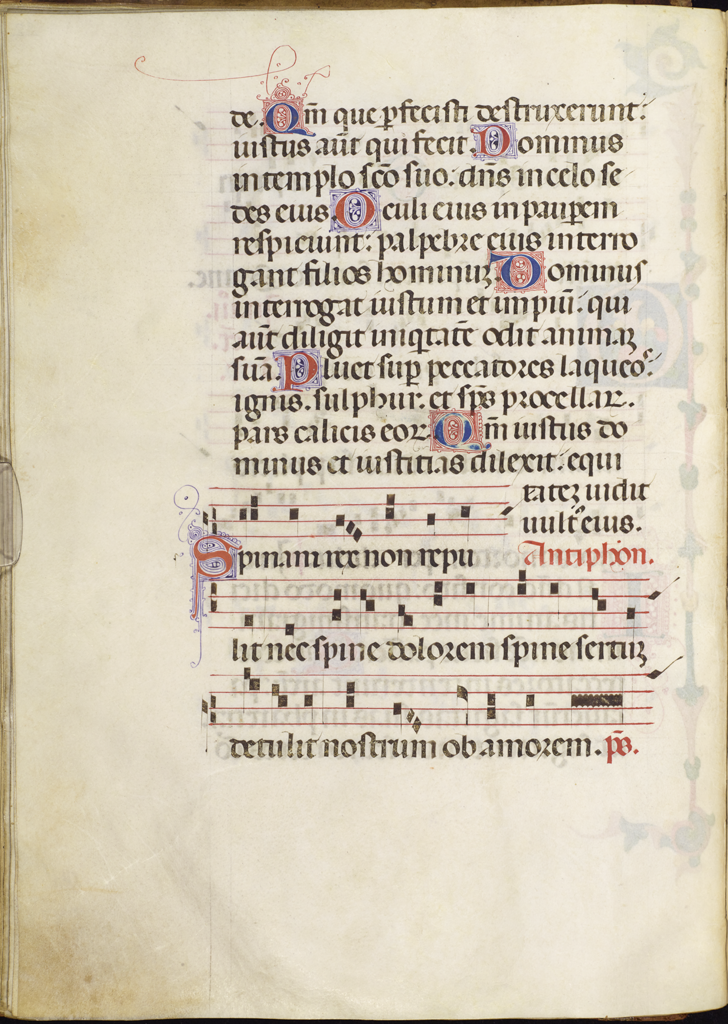 de. Qm̄ que p̱fecisti destruxerunt:
iustus aūt qui fecit. Dominus
in templo sc̄o suo: dn̄s in celo se
des eius. Oculi eius in paup̱em
respiciunt: palpebre eius interro
gant filios hominuꝫ. Dominus
interrogat iustum et impiū: qui
aūt diligit iniq̄tatē odit animaꝫ
suā. Pluet sup̱ peccatores laqueos:
ignis. sulphur. et sp̄s procellaꝝ.
pars calicis eoꝝ. Qm̄ iustus do
minus et iustitias dilexit: equi
tateꝫ uidit
uult᷒ eius.
Spinam rex non repu Antiphon.
lit nec spine dolorem spine sertuꝫ
detulit nostrum ob amorem. ps̄.